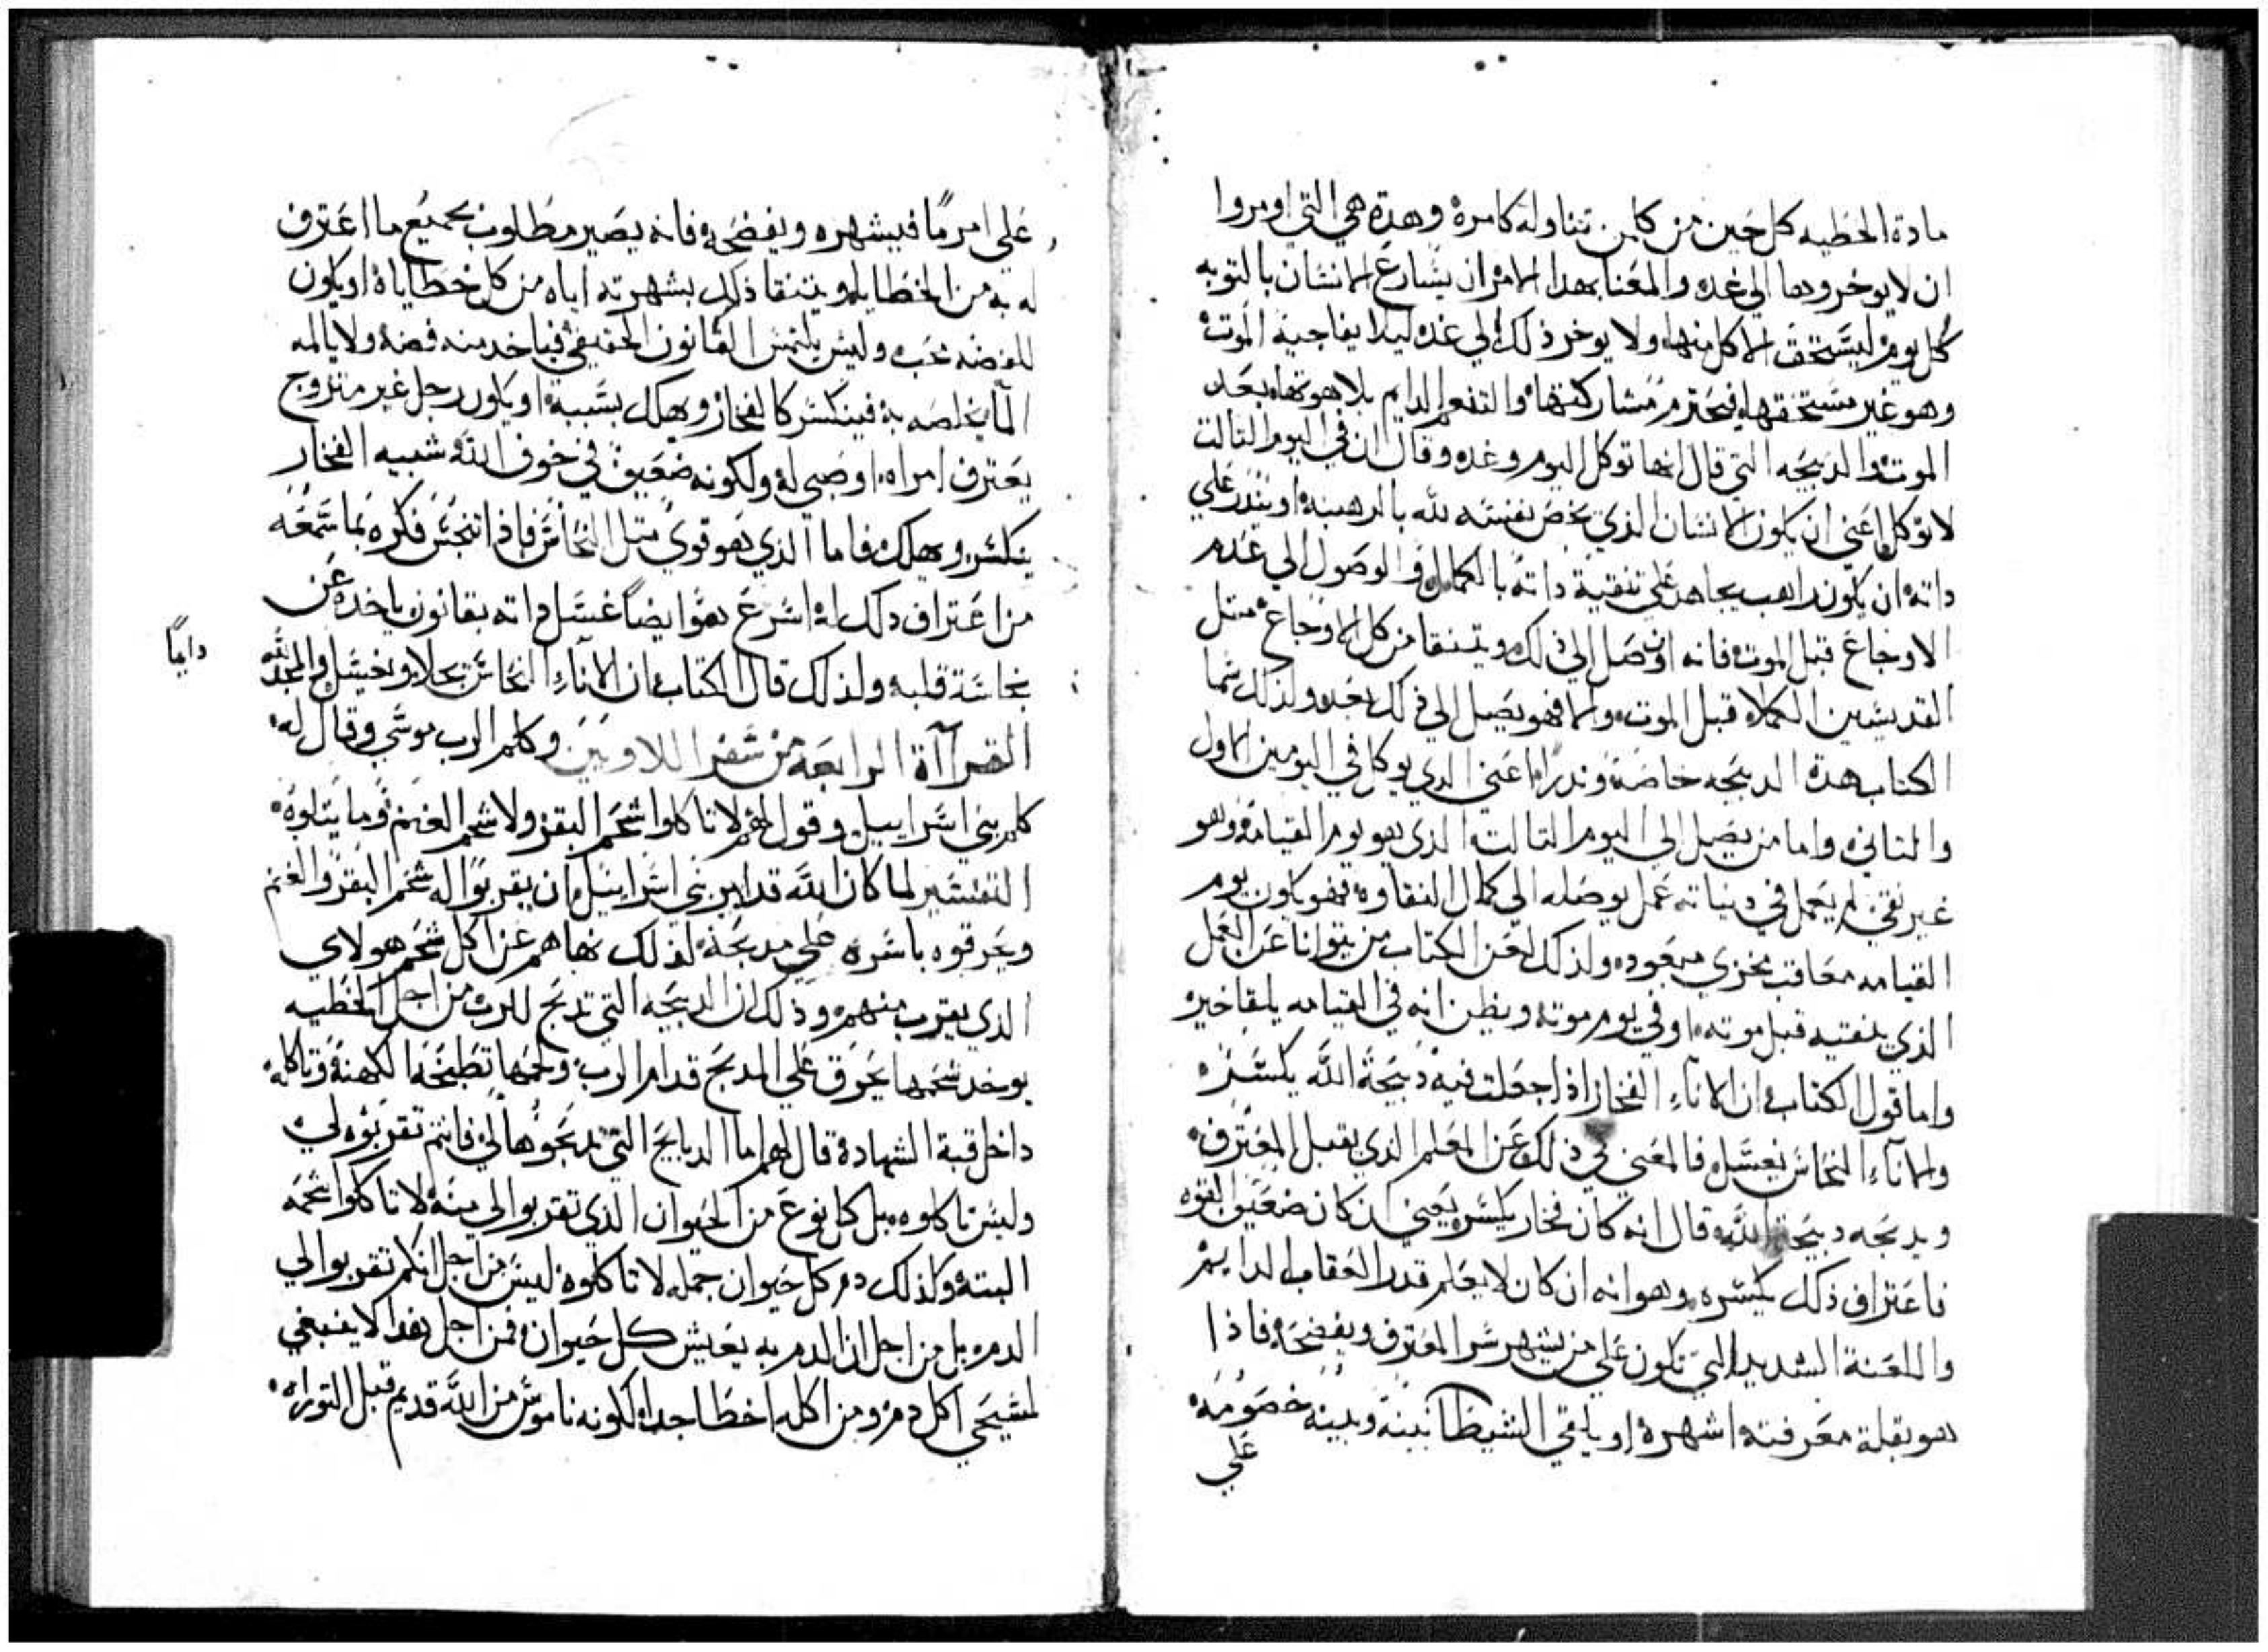 مادة الخطيه كل حين من كاهن تناوله كامره وهده هي التي اومروا
ان لا يوخروها الي غده والمعنا بهدا الامر ان يسارع الانسان بالتوبه
كل يوم ليستحق الاكل منها ولا يوخر ذلك الي غده ليلا يفاجيه الموت
وهو غير مستحقها فيحترم مشاركتها والتنعم الدايم بلاهوتها بعد
الموت والدبيحه التي قال انها توكل اليوم وغده وقال ان في اليوم التالت
لا توكل اعني ان يكون الانسان الذي يخص نفسه لله بالرهبنه او يندر علي
داته ان يكون راهب يجاهد علي تنقية داته بالكمال والوصول الي عدم
الاوجاع قبل الموت فانه اذ وصل الي ذلك ويتنقا من كل الاوجاع متل
القديسين الكملاء قبل الموت والا فهو يصل الي ذلك بعده ولذلك سما
الكتاب هده الدبيحه خاصه وندرا اعني الدي يوكل في اليومين الاول
والتاني واما من يصل الي اليوم التالت الدي هو يوم القيامه وهو
غير نقي لم يعمل في حياته عمل يوصله الي كمال النقاوه فهو يكون يوم
القيامه معاقب مخزي مبعود ولذلك لعن الكتاب من يتوانا عن العمل
الذي ينقيه قبل موته او في يوم موته ويظن انه في القيامه يلقا خيره
واما قول الكتاب ان الاناء الفخار اذا جعلت فيه دبيحة الله يكسره
والاناء النحاس يغسل فالمعني في ذلك عن المعلم الذي يقبل المعترف
ويدبحه دبيحة الله قال انه كان فخار يكسره يعني ان كان ضعيف القوه
فاعتراف ذلك يكسره وهو انه ان كان لا يعلم قدر العقاب الدايم
واللعنة الشديد التي تكون علي من يشهر سر المعترف ويفضحه فاذا
هو بقلة معرفته اشهره او يلقي الشيطان بينه وبينه خصومه
علي
علي امر ما فيشهره ويفضحه فانه يصير مطلوب بجميع ما اعترف
له به من الخطايا ويتنقا ذلك بشهرته اياه من كل خطاياه او يكون
للفضه محب وليس يلتمس القانون الحقيقي فياخد منه فضه ولا يالمه
الما يخلصه به فينكسر كالفخار ويهلك بسببه او يكون رجل غير متزوج
يعترف امراه او صبي له ولكونه ضعيف في خوف الله شبيه الفخار
ينكسر ويهلك فاما الذي هو قوي متل النحاس فاذا تنجس فكره بما سمعه
من اعتراف دلك له اسرع هو ايضا غسل داته بقانون ياخده عن
نجاسة قلبه ولذلك قال الكتاب ان الاناء النحاس يجلا ويغسل
دايما
القرآاة الرابعة من سفر اللاويين وكلم الرب موسي وقال له
كلم بني اسراييل وقول لهم لا تاكلوا شحم البقر ولا شحم الغنم وما يتلوه
التفسير لما كان الله قد امر بني اسراييل ان يقربوا له شحم البقر والغنم
ويحرقوه باسره علي مدبحه لذلك نهاهم عن اكل شحم هولاي
الذي يقرب منهم وذلك ان الدبيحه التي تدبح للرب من اجل الخطيه
يوخد شحمها يحرق علي المدبح قدام الرب ولحمها تطبخه الكهنه وتاكله
داخل قبة الشهادة قال لهم اما الدبايح التي تدبحوها لي فانتم تقربوه لي
وليس تاكلوه بل كل نوع من الحيوان الذي تقربوا لي منه لا تاكلوا شحمه
البته وكذلك دم كل حيوان جمله لا تاكلوه ليس من اجل انكم تقربوا لي
الدم بل من اجل ان الدم به يعيش كل حيوان فمن اجل هدا لا ينبغي
لمسيحي اكل دم ومن اكله اخطا جدا لكونه ناموس من الله قديم قبل التوراه